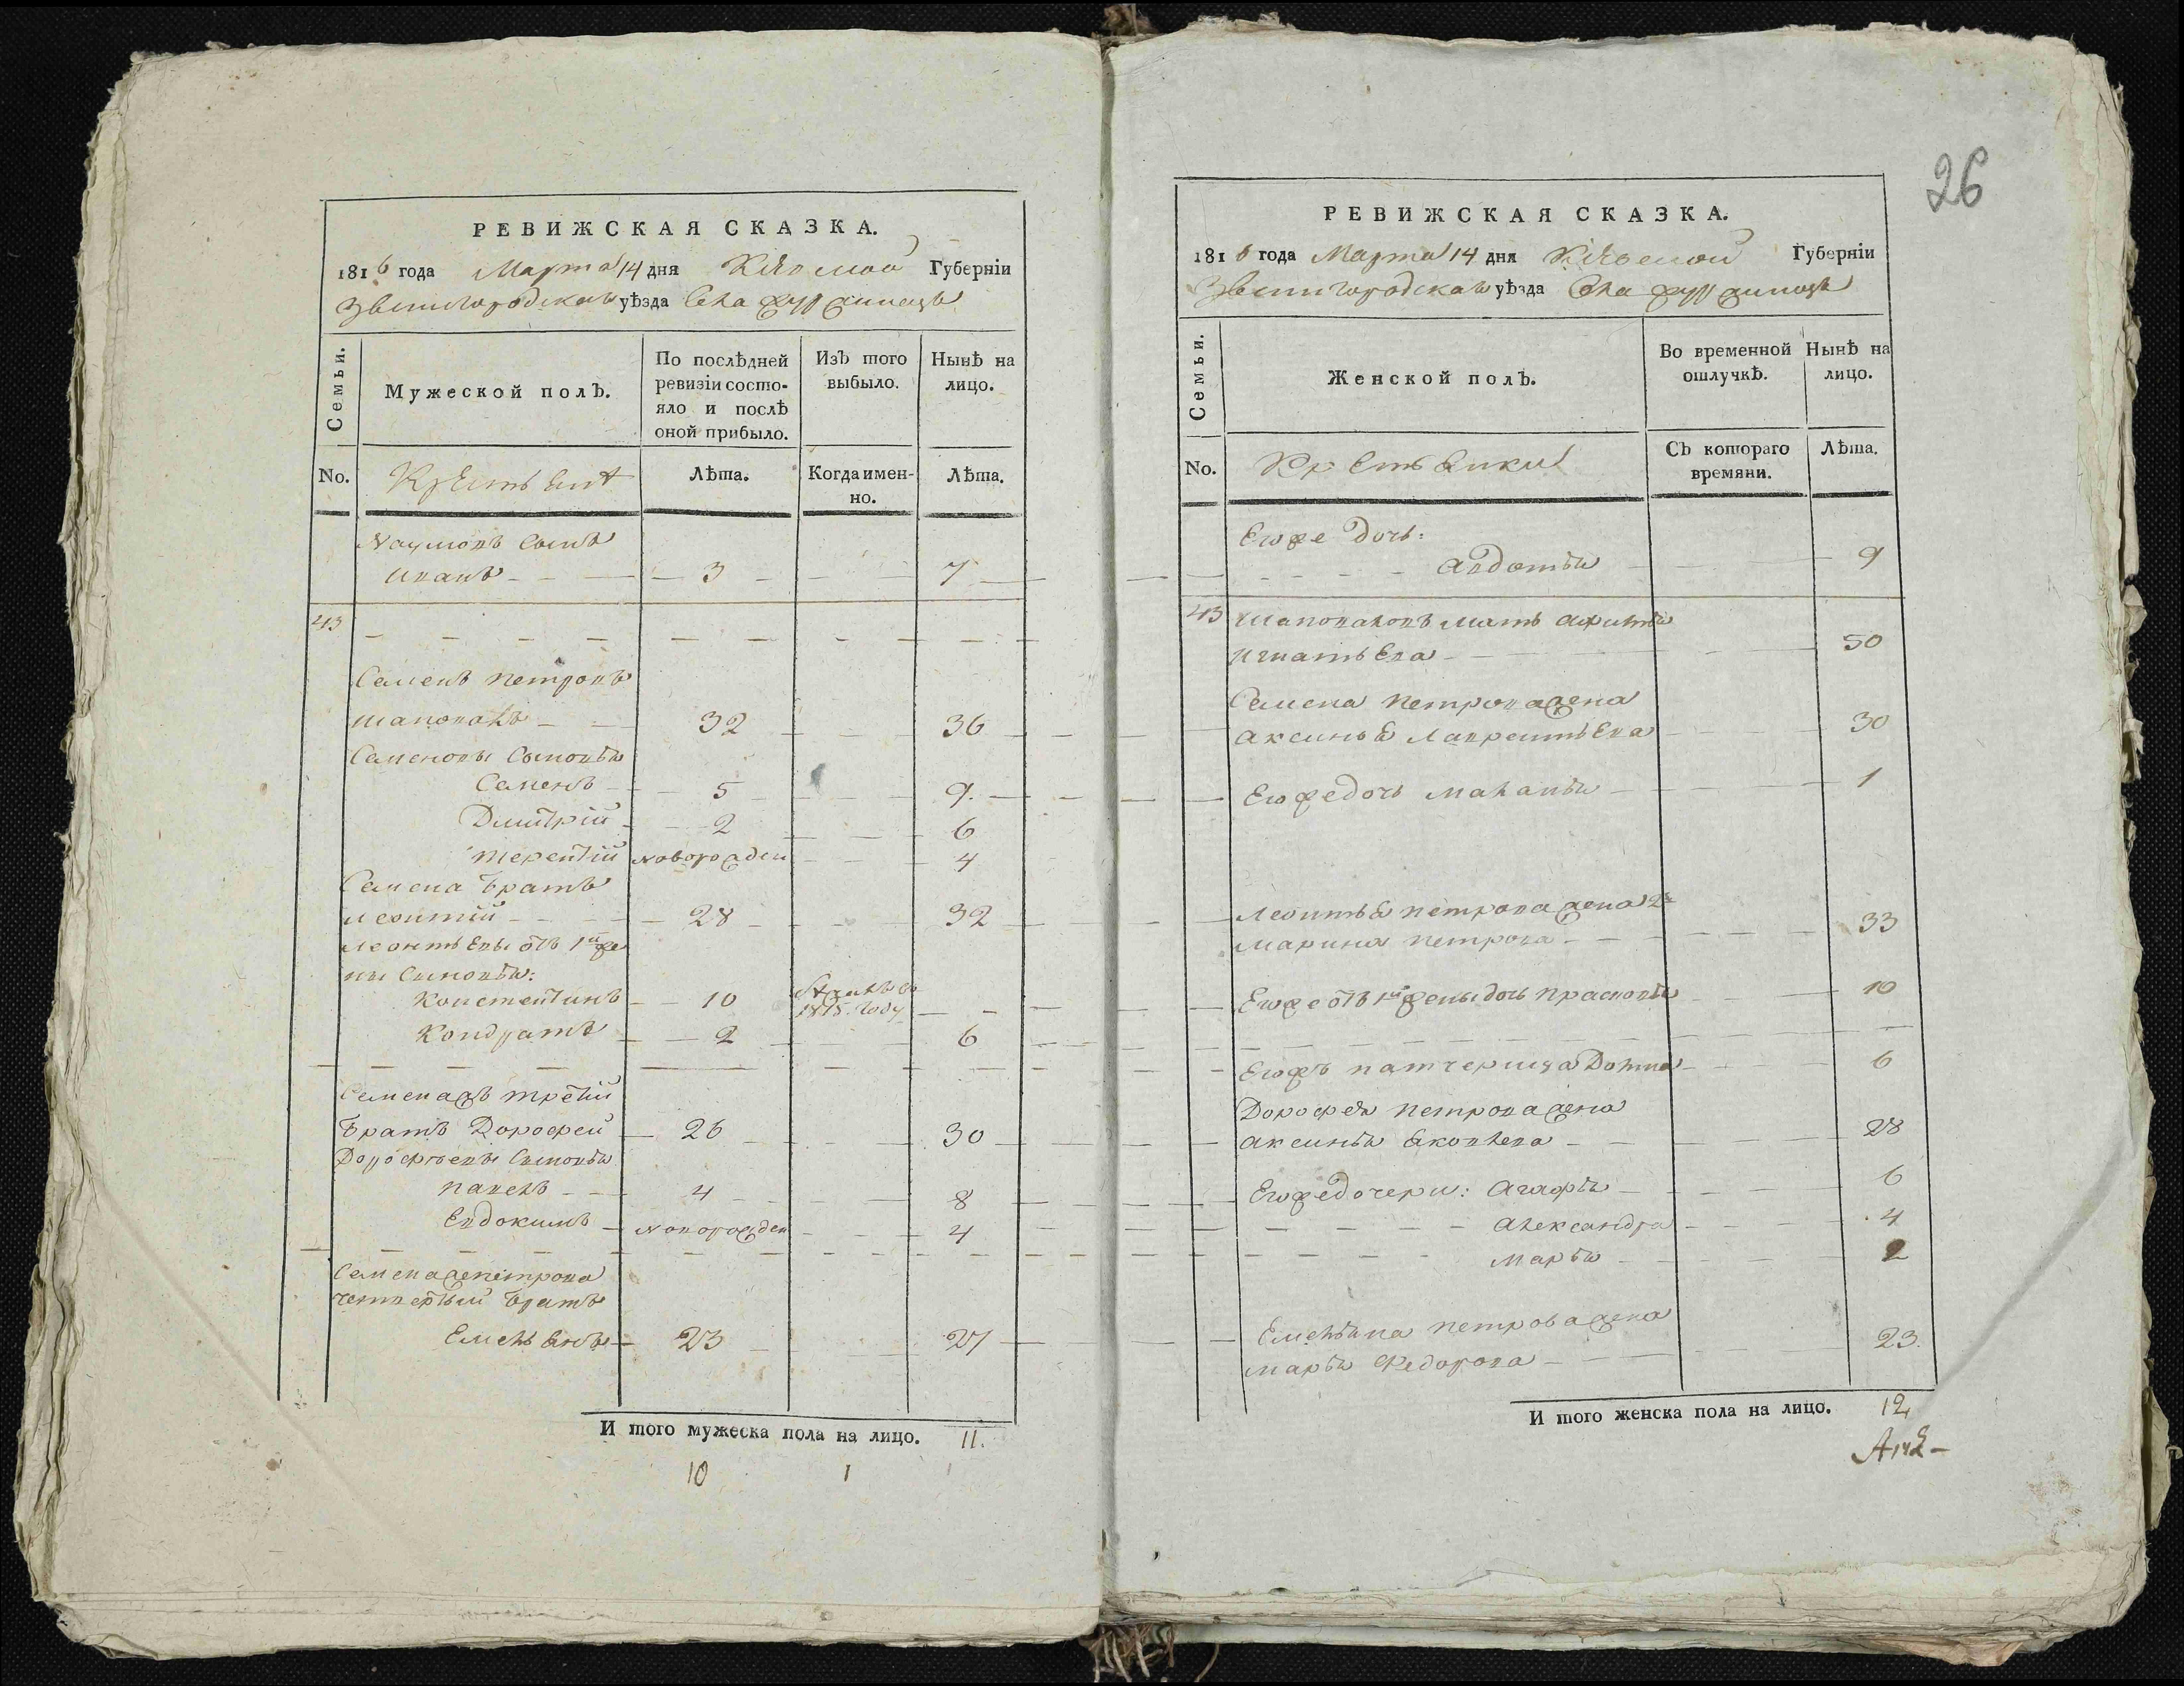 РЕВИЖСКАЯ СКАЗКА.
1816 года Марта 14 дня Кіевской Губерніи
Звенигородскаго уѣзда Села
Семьи.
Мужеской полъ.
По послѣдней ревизіи состояло и послѣ оной прибыло.
Изъ того выбыло.
Нынѣ на лицо.
No.
Крестьяне
Лѣта.
Когда именно.
Лѣта.
Наумовъ Сынъ
Иванъ 3 7
43
Семенъ Петровъ
Шаповалъ 32 36
Семеновы Сыновья
Семенъ 5 9.
Дмитрій 2 6
Терентій новорожден 4
Семена братъ
Леонтій 28 32
Леонтьевы отъ 1й же
ны Сыновья:
Констентинъ 10 1815. году
Кондратъ 2 6
Семена жъ третій
братъ Дорофей 26 30
Дорофѣевы Сыновья
Павелъ 4 8
Евдокимъ новорожден 4
Семена же Петрова
четвертый братъ
Емельянъ 23 27
И того мужеска пола на лицо. 11.
10 1
26
РЕВИЖСКАЯ СКАЗКА.
1816 года Марта 14 дня Кіевской Губерніи
Звенигородскаго уѣзда Села
Семьи.
Женской полъ.
Во временной отлучкѣ.
Нынѣ на лицо.
No.
Крестьянки
Съ котораго времяни.
Лѣта.
Его же дочь:
Авдотья 9
43 Шаповаловъ мать
Игнатьева 50
Семена Петрова жена
Аксинья Лаврентьева 30
Его же дочь Маланья 1
Леонтья Петрова жена 2я
Марина Петрова 33
Его же отъ 1й жены дочь Прасковья 10
Его жъ патчерица Домна 6
Дорофея Петрова жена
Аксинья Яковлева 28
Его же дочери: Агафья 6
Александра 4
Марья 2
Емельяна Петрова жена
Марья Федорова 23.
И того женска пола на лицо. 12